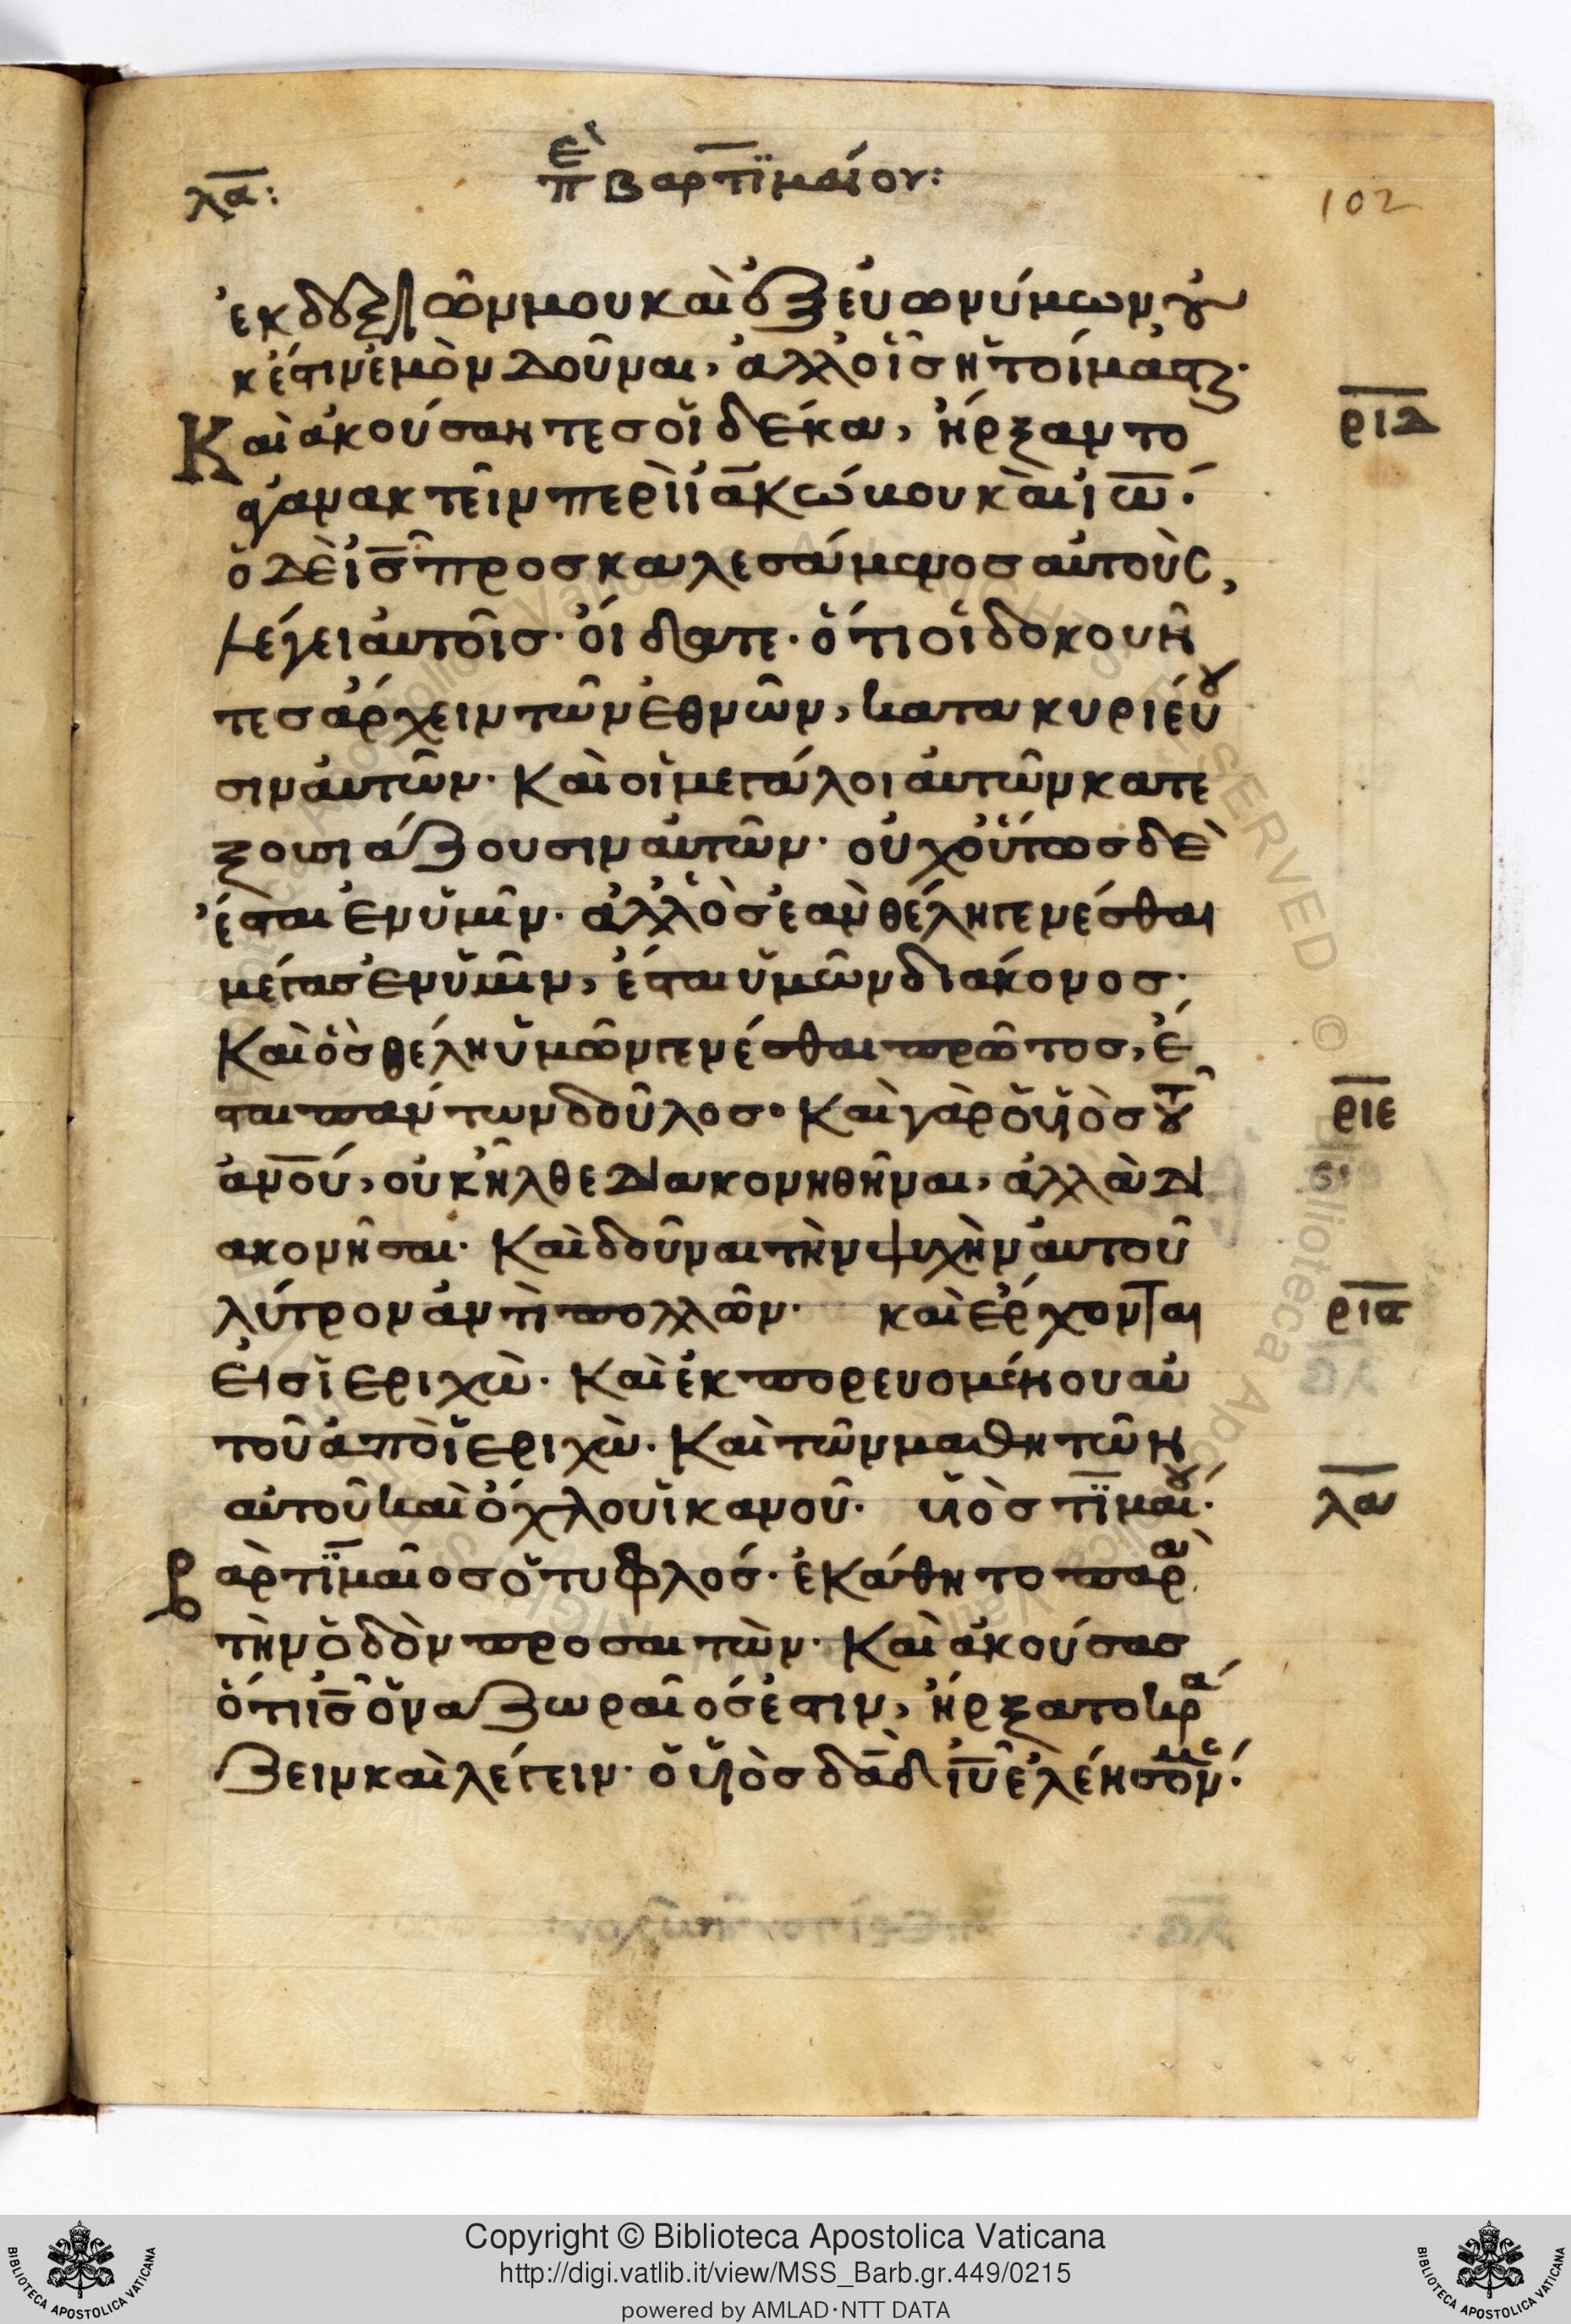 λα:
ἐπὶ βαρτϊμαίου:
102
ἐκ δεξιῶν μου καὶ ἐξ εὐωνύμων οὐ
κ ἔστιν ἐμὸν δοῦναι, ἀλλ' οἷς ἡτοίμασται·
Καὶ ἀκούσαντες οἱ δέκα, ἤρξαντο
ἀγανακτεῖν περὶ ἰακώβου καὶ ἰω·
ὁ δὲ ις προσκαλεσάμενος αὐτοὺς,
λέγει αὐτοῖς· οἴδατε· ὅτι οἱ δοκοῦν
τες ἄρχειν τῶν ἐθνῶν, κατακυριεύου
σιν αὐτῶν· Καὶ οἱ μεγάλοι αὐτῶν κατε
ξουσιάζουσιν αὐτῶν· οὐχ οὕτως δὲ
ἔσται ἐν ὑμῖν· ἀλλ' ὃς ἐὰν θέλη γενέσθαι
μέγας ἐν ὑμῖν, ἔσται ὑμῶν διάκονος·
Καὶ ὃς θέλη ὑμῶν γενέσθαι πρῶτος, ἔ
σται πάντων δοῦλος· Καὶ γὰρ ὁ υἱὸς τοῦ
ανου, οὐκ ἦλθε διακονηθῆναι, ἀλλὰ δι
ακονῆσαι· Καὶ δοῦναι τὴν ψυχὴν αὐτοῦ
λύτρον ἀντὶ πολλῶν· καὶ ἔρχονται
εἰς ἱεριχὼ· Καὶ ἐκπορευομένου αὐ
τοῦ ἀπὸ ἱεριχὼ· Καὶ τῶν μαθητῶν
αὐτοῦ καὶ ὄχλου ἱκανοῦ· υἱὸς τϊμαίου·
βαρτϊμαῖος ὁ τυφλός· ἐκάθητο παρὰ
τὴν ὁδὸν προσαιτῶν· Καὶ ἀκούσας
ὅτι ις ὁ ναζωραῖός ἐστιν, ἤρξατο κρά
ζειν καὶ λέγειν· ὁ υἱὸς δαδ ιυ ἐλέησόν με·
ριδ
ριε
ρις
λα
Copyright © Biblioteca Apostolica Vaticana
http://digi.vatlib.it/view/MSS_Barb.gr.449/0215
powered by AMLAD·NTT DATA
BIBLIOTECA APOSTOLICA VATICANA
BIBLIOTECA APOSTOLICA VATICANA